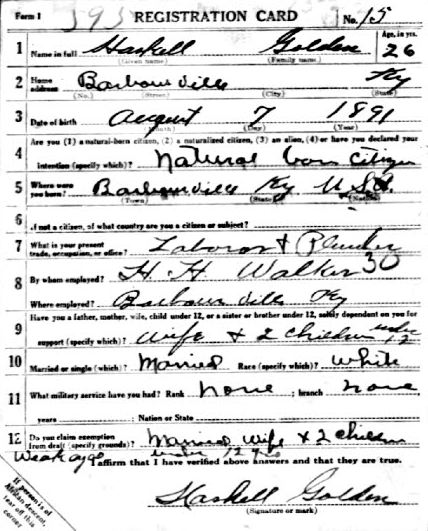 Form 1 595 REGISTRATION CARD No. 15
1 Name in full Haskell Golden Age, in yrs. 26
(Given name) (Family name)
2 Home address Barbourville Ky
(No.) (Street) (City) (State)
3 Date of birth August 7 1891
(Month) (Day) (Year)
4 Are you (1) a natural-born citizen, (2) a naturalized citizen, (3) an alien, (4) or have you declared your
intention (specify which)? Natural born citizen
5 Where were you born? Barbourville Ky U.S.A.
(Town) (State) (Nation)
6 If not a citizen, of what country are you a citizen or subject?
7 What is your present trade, occupation, or office? Laborer & Plumber
8 By whom employed? H. H. Walker 30
Where employed? Barbourville Ky
9 Have you a father, mother, wife, child under 12, or a sister or brother under 12, solely dependent on you for
support (specify which)? Wife & 2 children under 12
10 Married or single (which)? Married Race (specify which)? White
11 What military service have you had? Rank none ; branch none
years ; Nation or State
12 Do you claim exemption from draft (specify grounds)? Married wife & 2 children
Weak under 12
I affirm that I have verified above answers and that they are true.
Haskell Golden
(Signature or mark)
If person is of
African descent,
tear off this
corner.